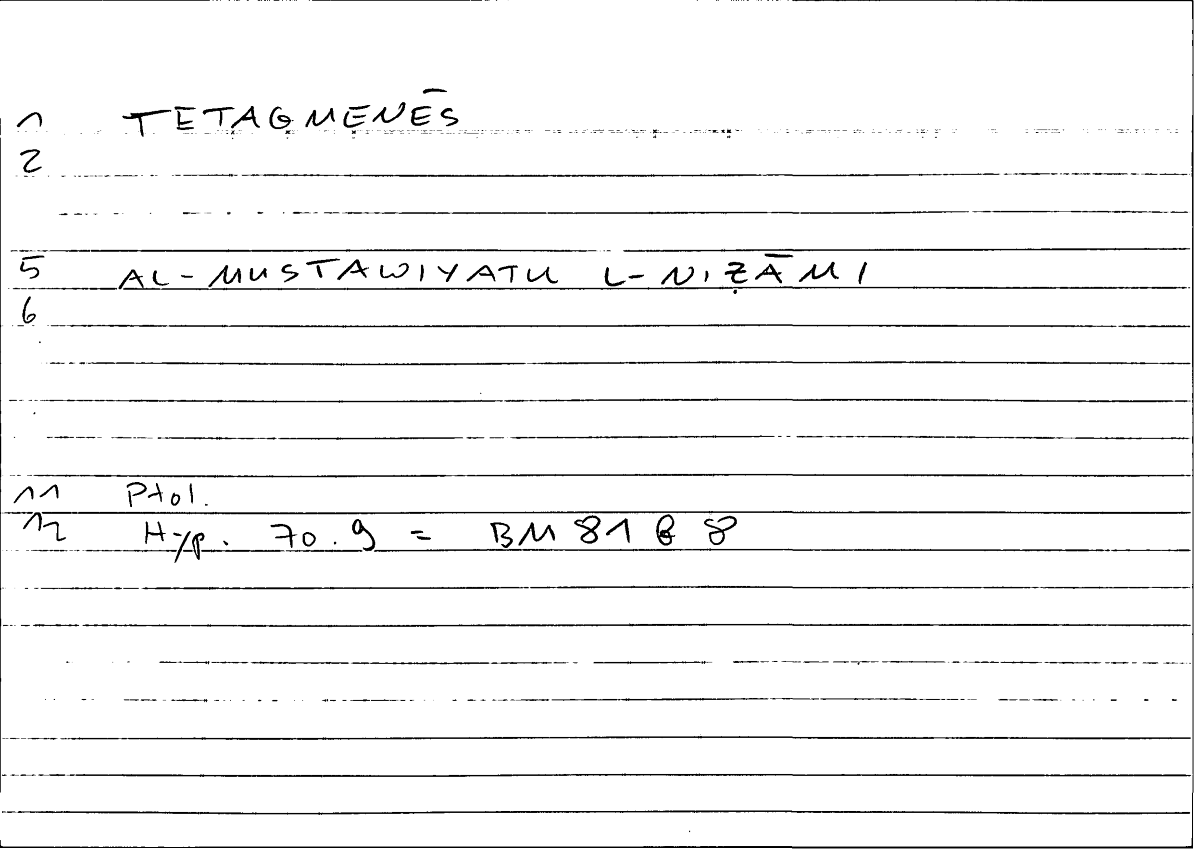 1 TETAGMENĒS
2
5 AL-MUSTAWIYATU L-NIẒĀMI
6
11 Ptol.
12 Hyp. 70.9 = BM 81 6 8